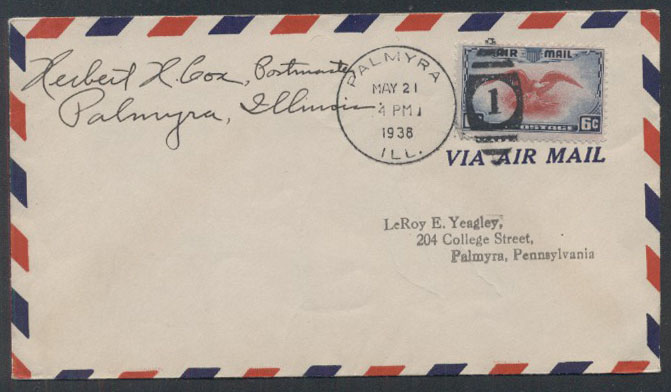 Herbert H. Cox, Postmaster
Palmyra, Illinois
PALMYRA
MAY 21
4 PM
1938
ILL.
1
AIR MAIL
POSTAGE 6c
VIA AIR MAIL
LeRoy E. Yeagley,
204 College Street,
Palmyra, Pennsylvania